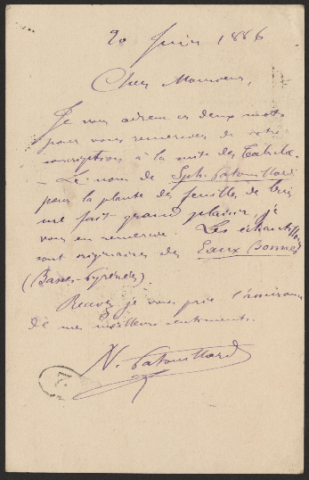 20 Juin 1886
Cher Monsieur,
Je vous adresse ces deux mots
pour vous remercier de votre
souscription à la suite des Tabulae
- Le nom de Sph. Patouillardi
pour la plante des feuilles de buis
me fait grand plaisir, je
vous en remercie. Les échantillons
sont originaires des Eaux Bonnes
(Basses-Pyrénées).
Recevez je vous prie l'assurance
de mes meilleurs sentiments.
N. Patouillard